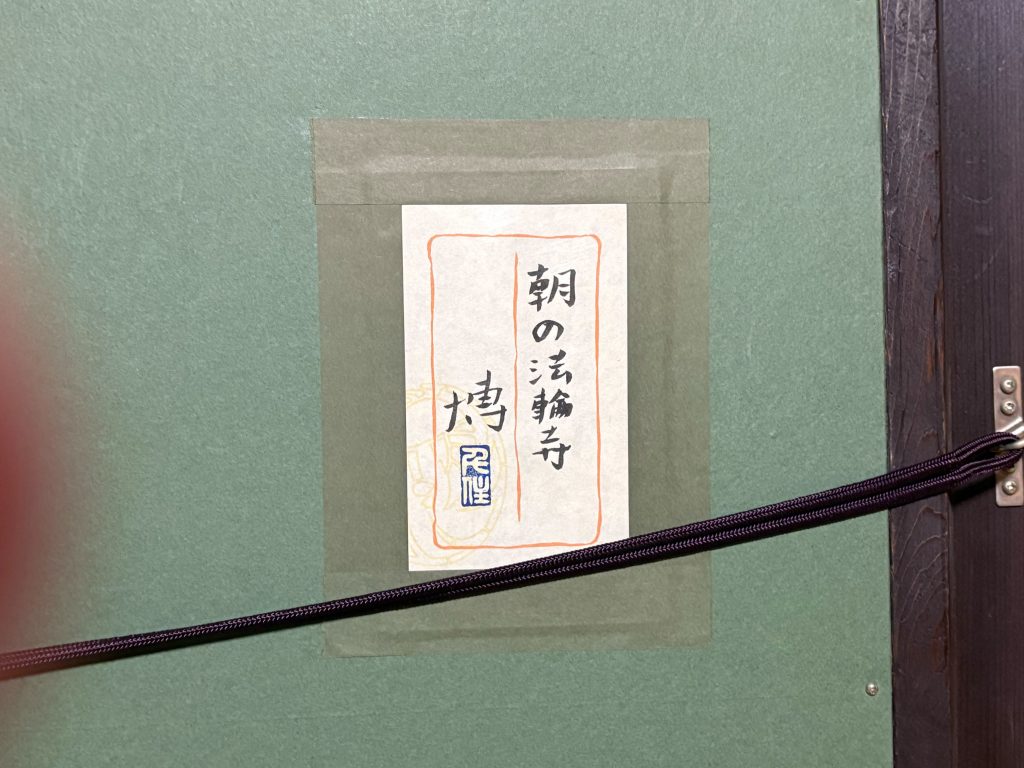 朝の法輪寺